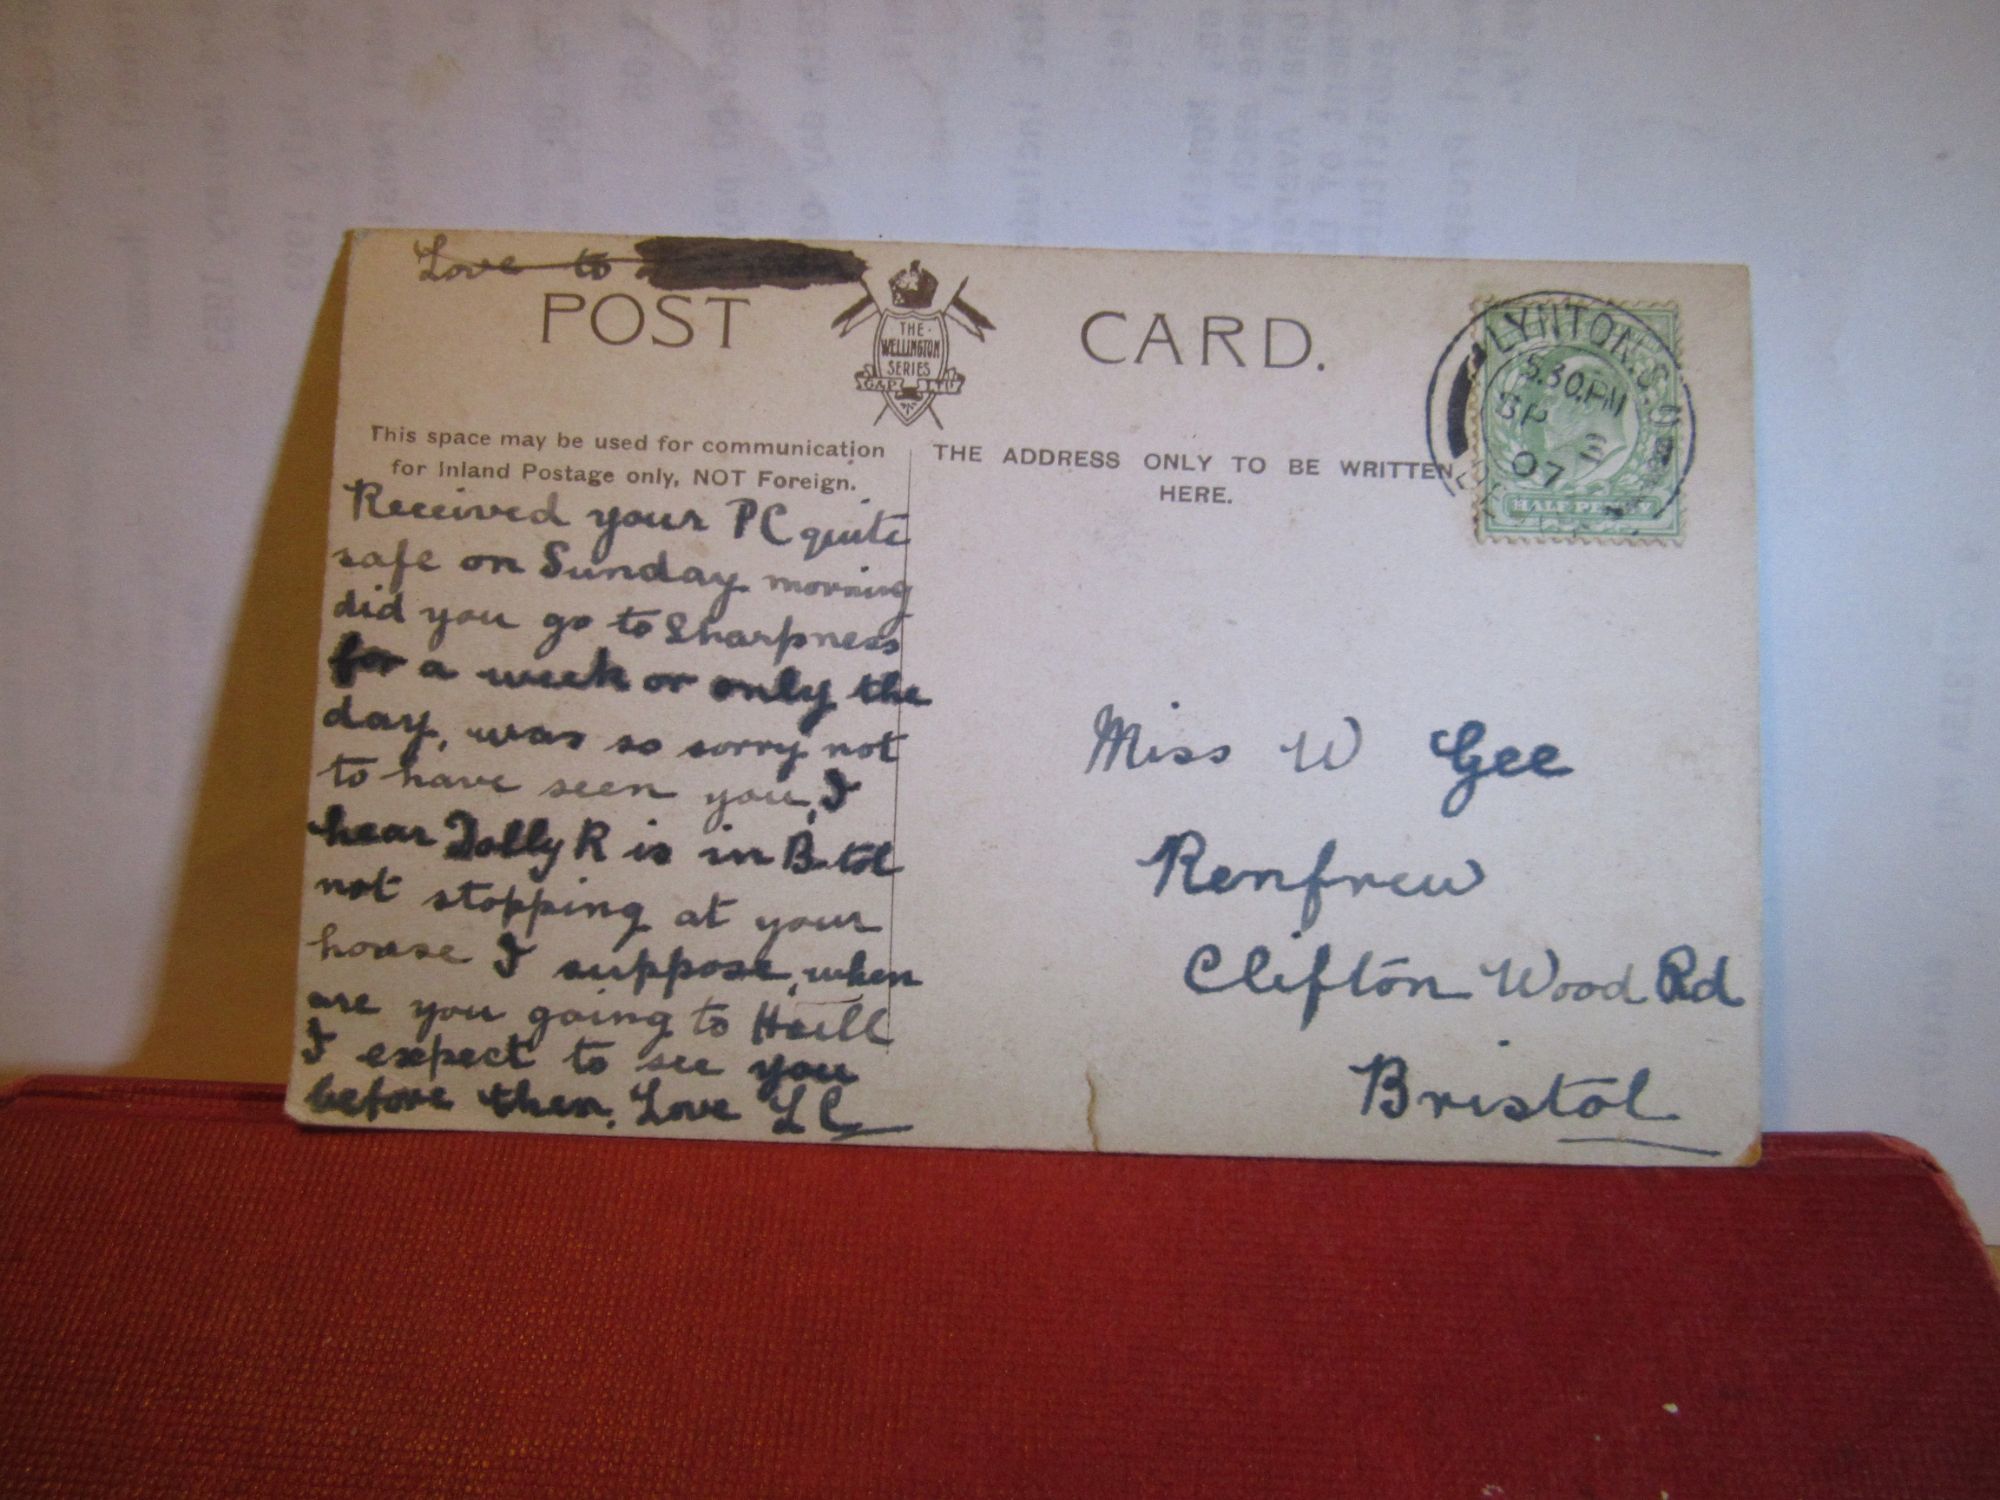 Love to
POST CARD.
THE
WELLINGTON
SERIES
G&P LTD
LYNTON. S.O
5.30.PM
SP 6
07
HALF PENNY
This space may be used for communication
for Inland Postage only, NOT Foreign.
THE ADDRESS ONLY TO BE WRITTEN
HERE.
Received your PC quite
safe on Sunday morning
did you go to Sharpness
for a week or only the
day, was so sorry not
to have seen you, I
hear Dolly R is in B-tol
not stopping at your
house I suppose, when
are you going to Hull
I expect to see you
before then. Love L C
Miss W Gee
Renfrew
Clifton Wood Rd
Bristol